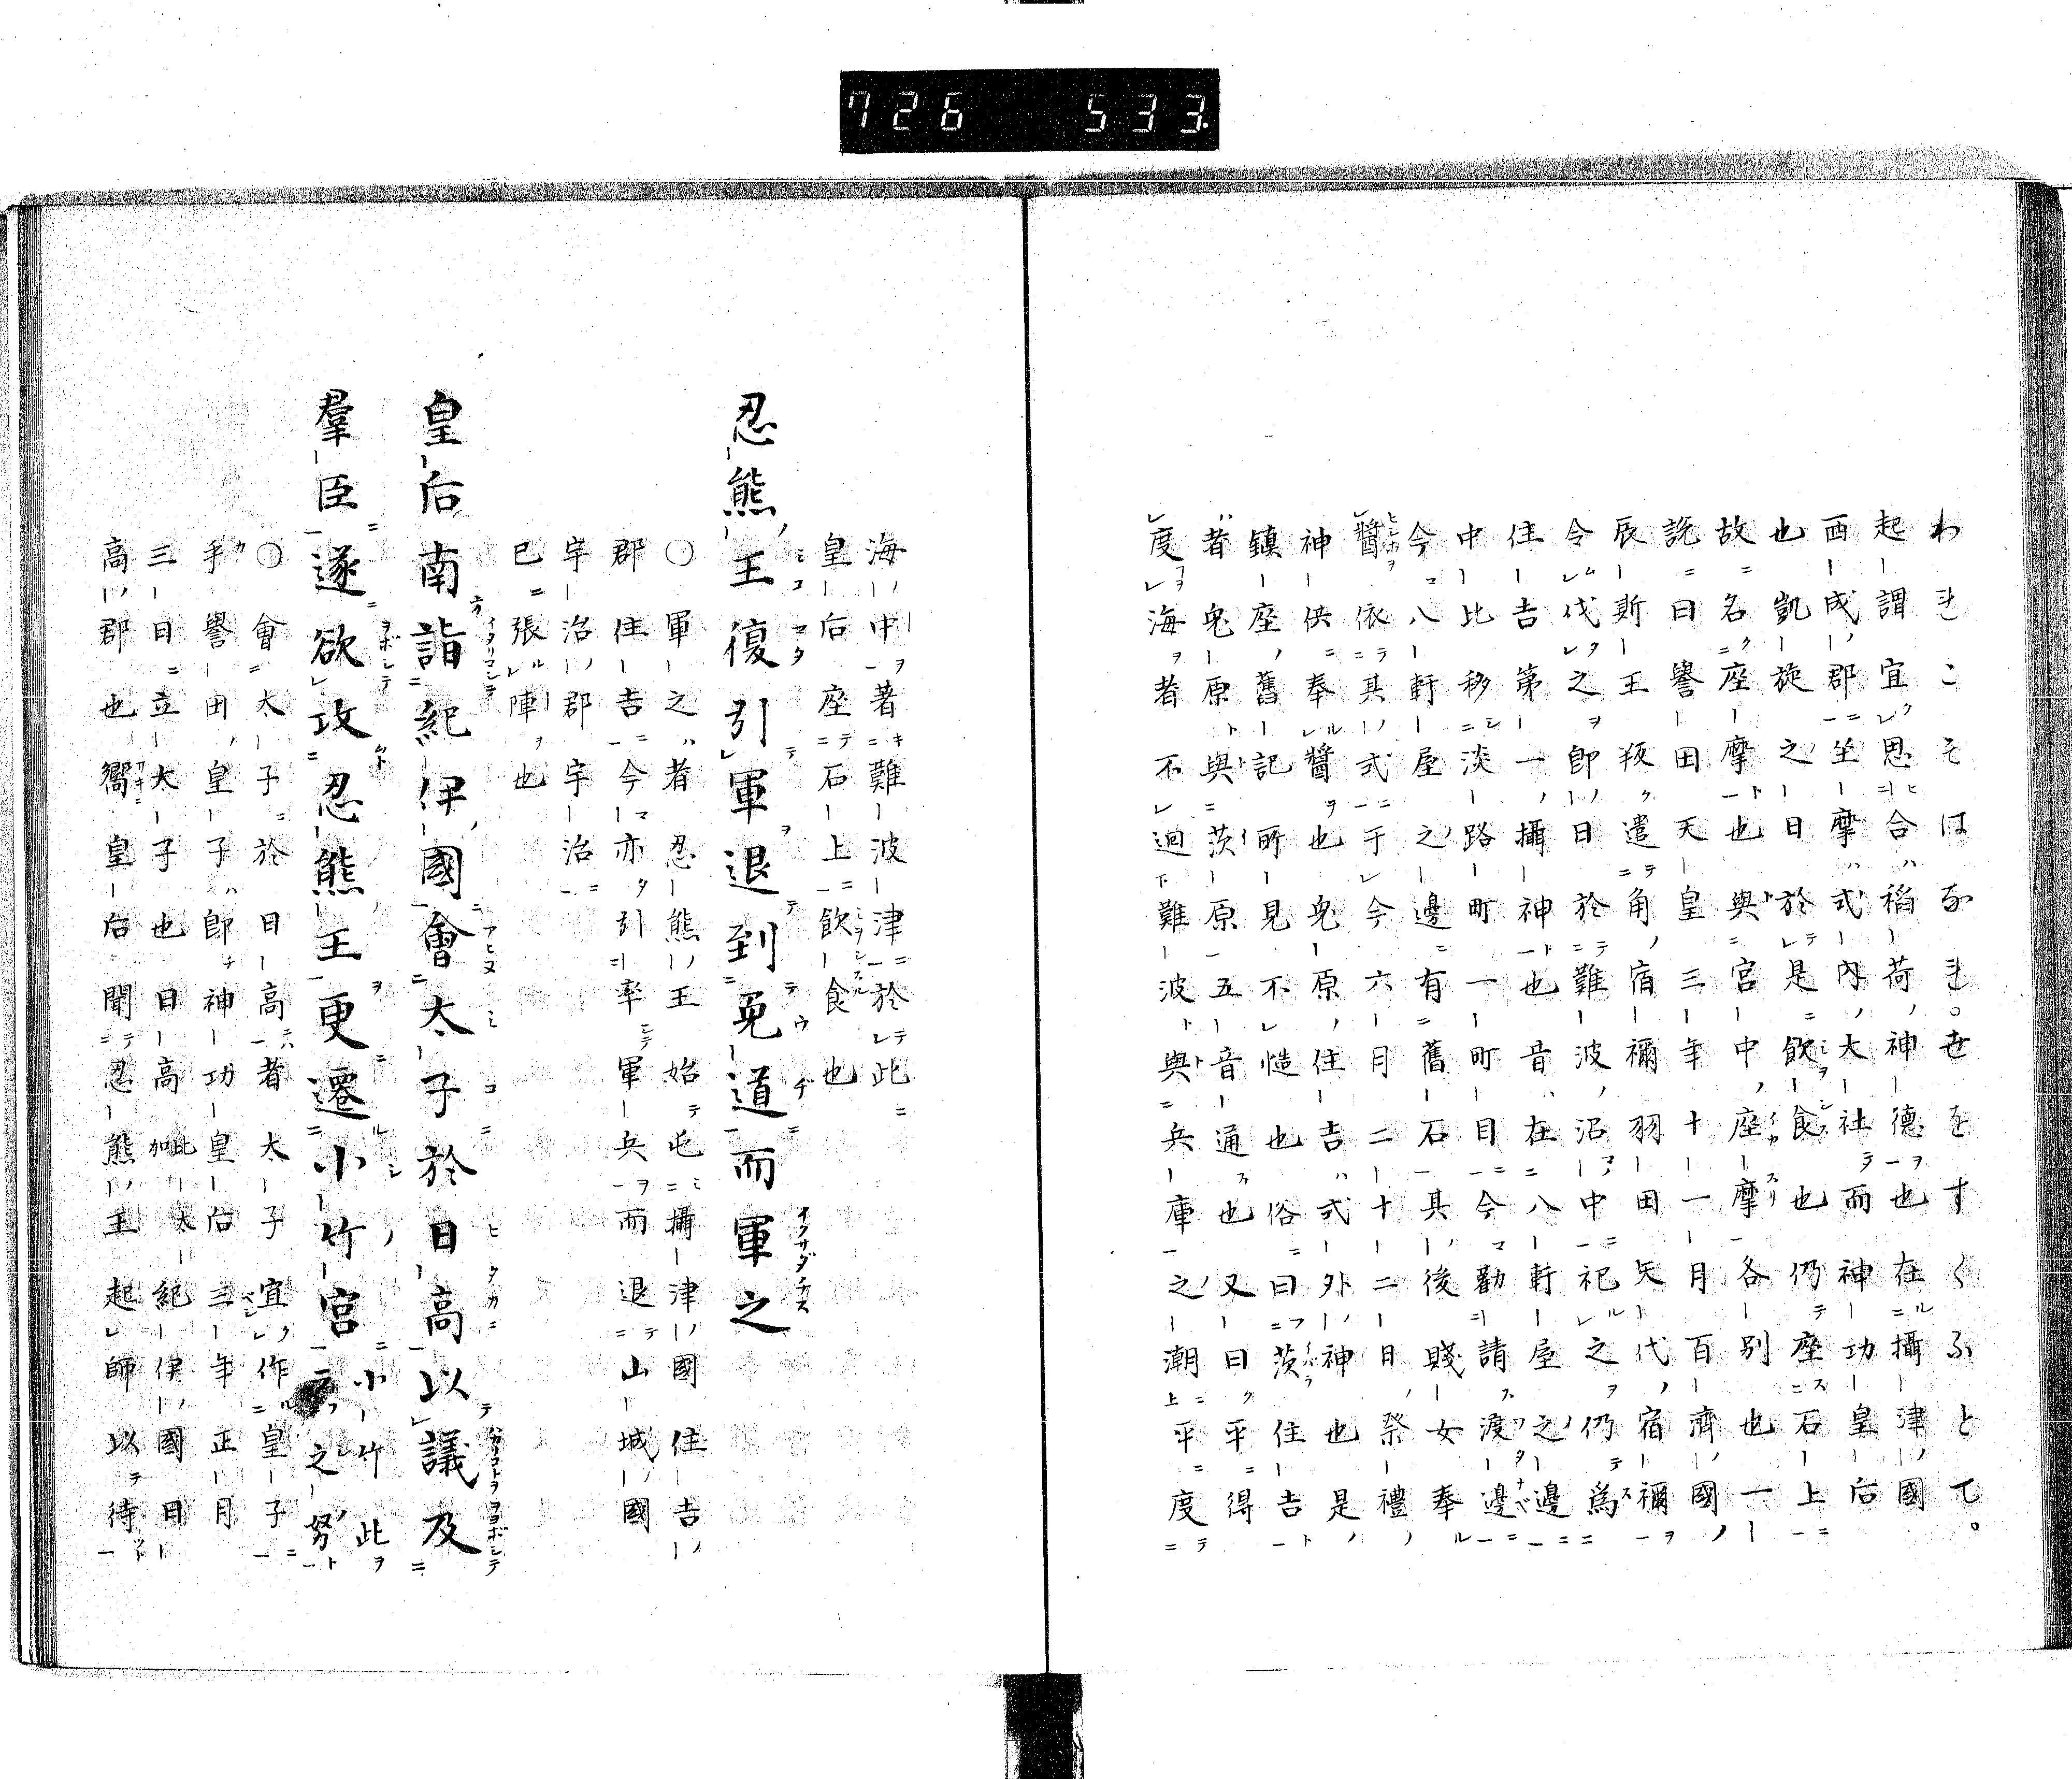 726 533
われこそはなれ。世をすくふとて。
起謂宜思合稻荷神德也在攝津國
西成郡坐摩式內大社而神功皇后
也凱旋之日於是飮食也仍座石上
故名座摩也與宮中座摩各別也一
說曰譽田天皇三年十一月百濟國
辰斯王叛遣角宿禰羽田矢代宿禰
令代之卽日於難波沼中祀之仍爲
住吉第一攝神也昔在八軒屋之邊
中比移淡路町一町目今勸請渡邊
今八軒屋之邊有舊石其後賤女奉
醬依其式于今六月二十二日祭禮
神供奉醬也兎原住吉式外神也是
鎮座舊記所見不慥也俗曰茨住吉
者兎原與茨原五音通也又曰平得
度海者不迴難波與兵庫之潮平度
海中著難波津於此
皇后座石上飮食也
忍熊王復引軍退到菟道而軍之
○軍之者忍熊王始屯攝津國住吉
郡住吉今亦引率軍兵而退山城國
宇治郡宇治
已張陣也
皇后南詣紀伊國會太子於日高以議及
羣臣遂欲攻忍熊王更遷小竹宮小竹此云之努
○會太子於日高者太子宜作皇子
乎譽田皇子卽神功皇后三年正月
三日立太子也日高如此太紀伊國日
高郡也嚮皇后聞忍熊王起師以待